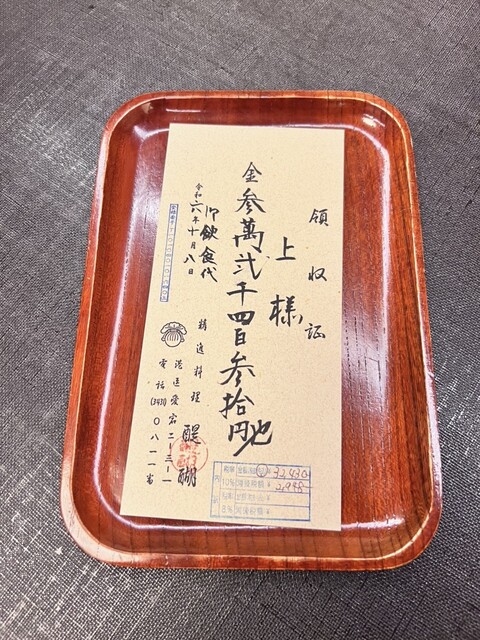 領収証
上様
金参萬弐千四百参拾円也
御飲食代
令和六年十月八日
精進料理
醍醐
港区愛宕二ー三ー一
電話(3431)〇八一一番
32,430
10%
¥2,948
8%